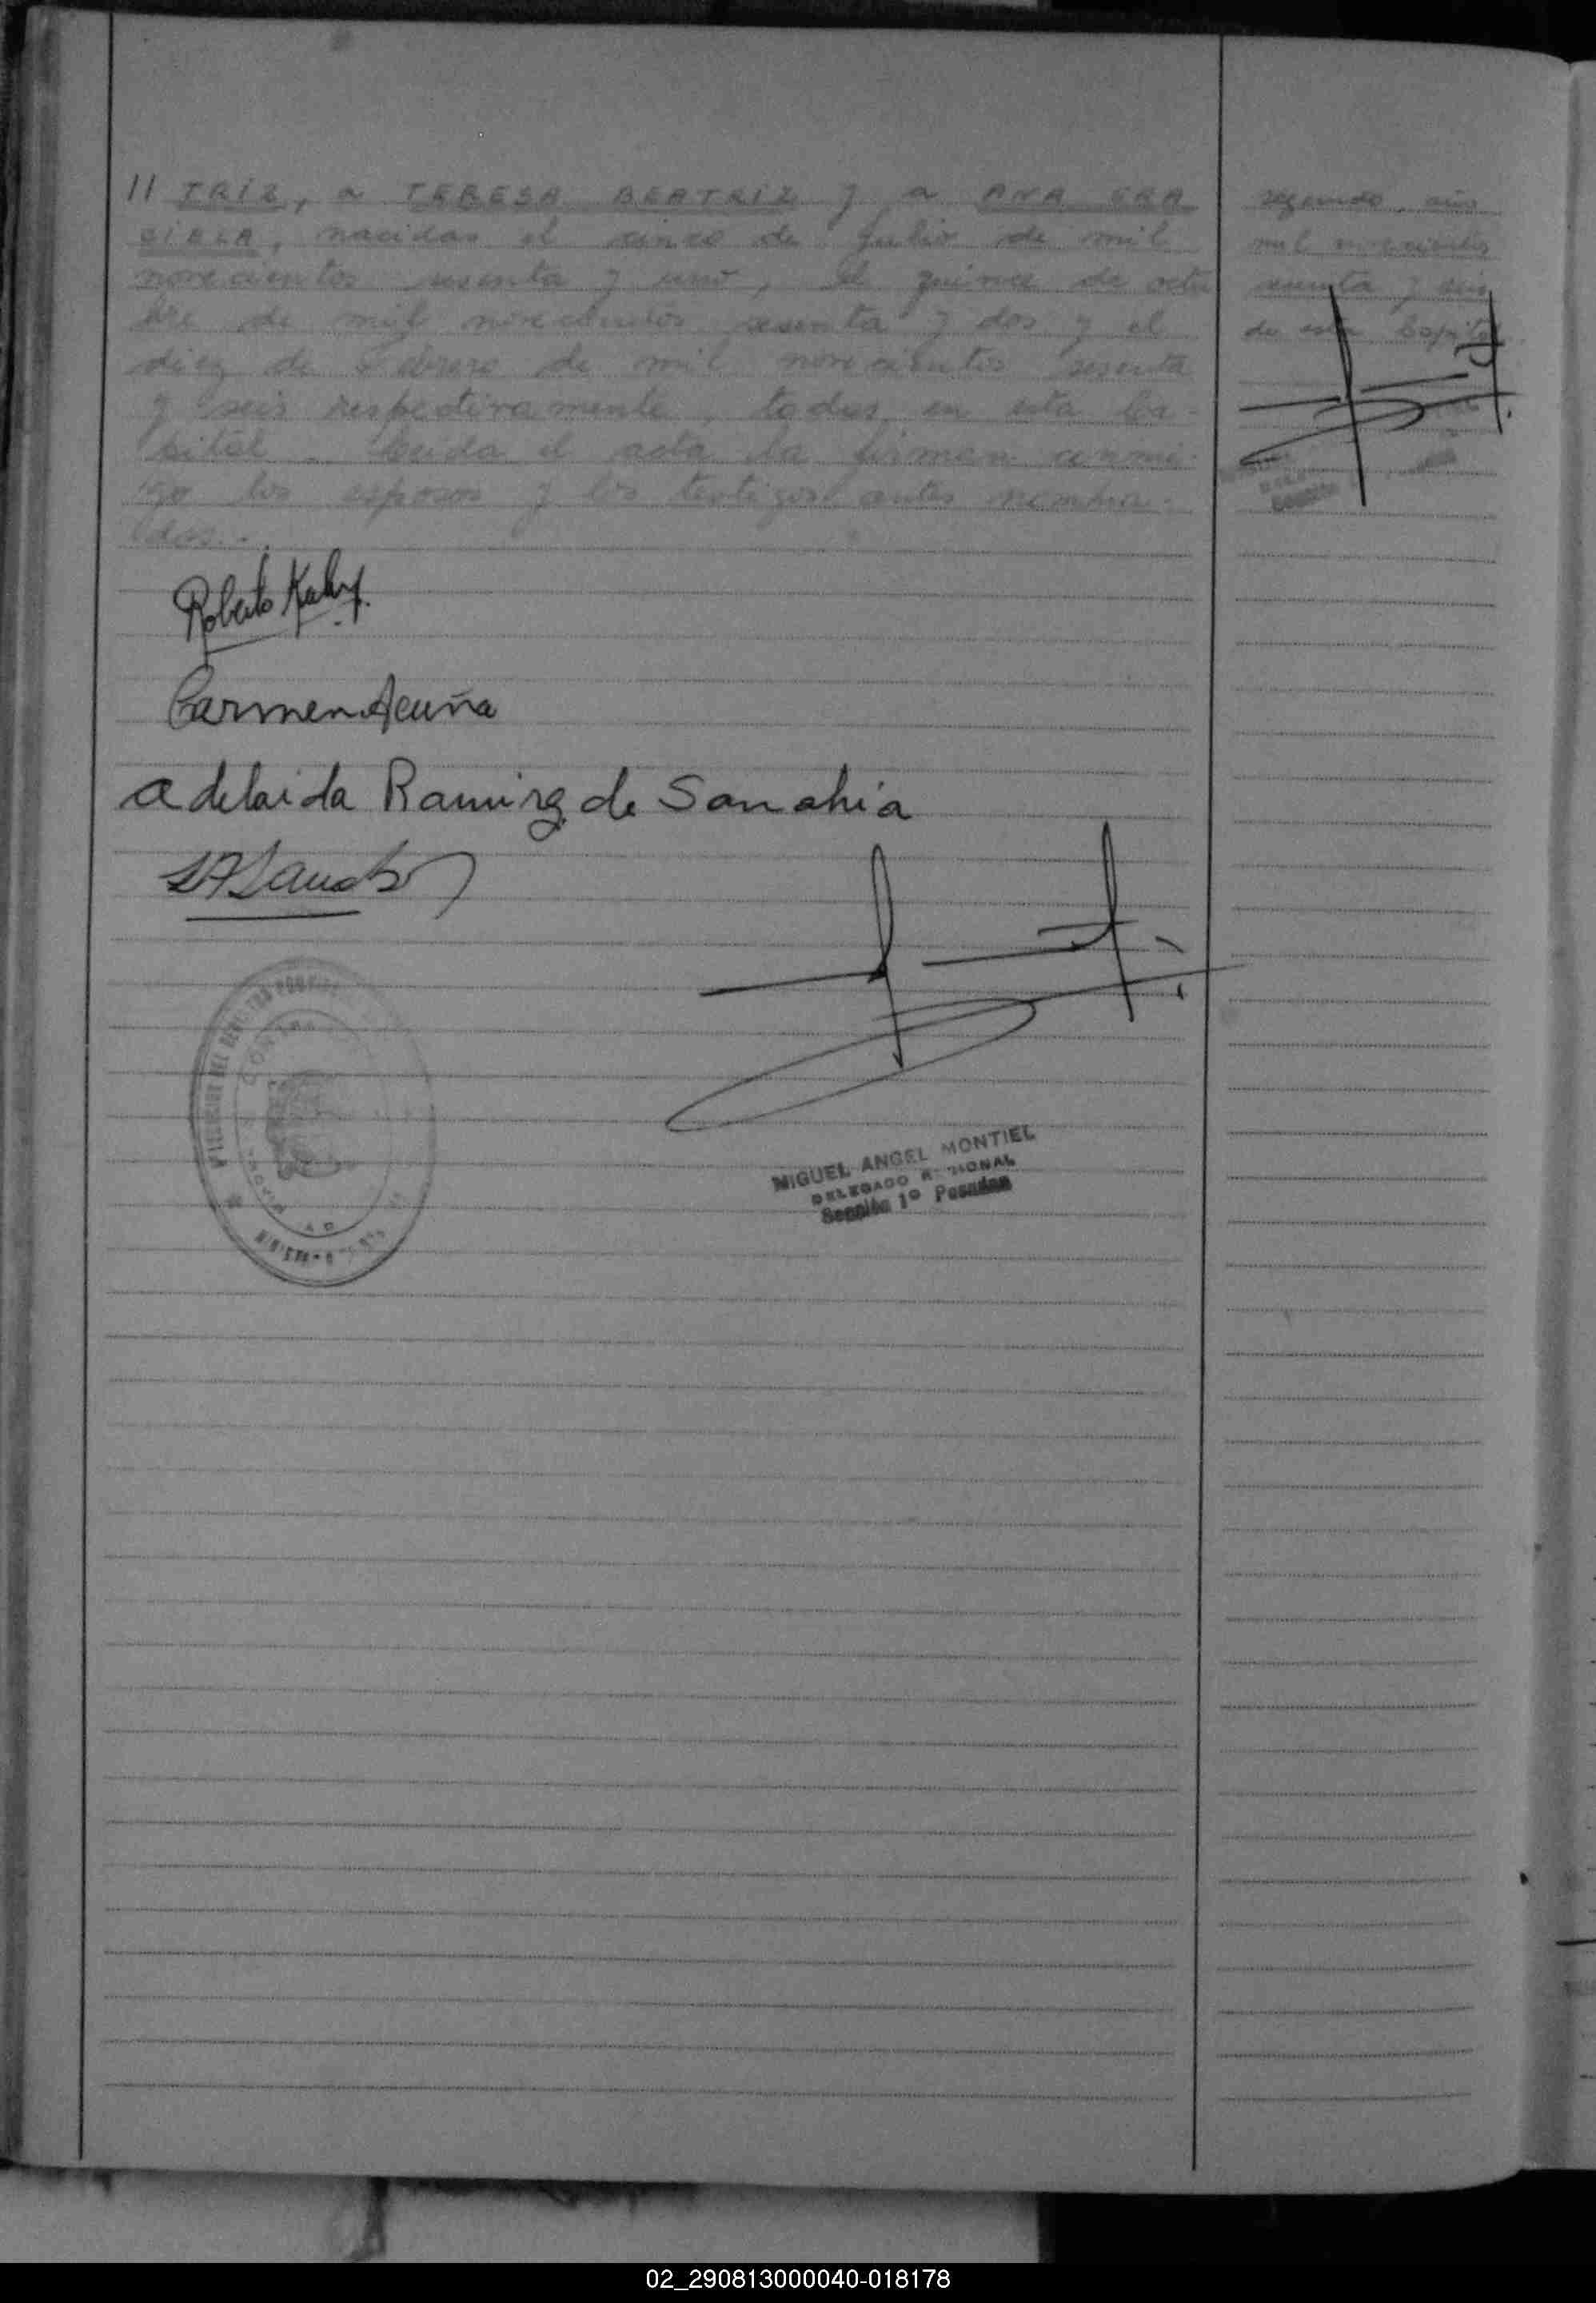 // TRIZ, a TERESA BEATRIZ y a ANA GRA
CIELA, nacidas el cinco de Julio de mil
novecientos sesenta y uno, el quince de octu
bre de mil novecientos sesenta y dos y el
diez de Febrero de mil novecientos sesenta
y seis respectivamente, todas en esta Ca-
pital. Leida el acta la firman conmi-
go los esposos y los testigos antes nombra-
dos.-
segundo, año
mil novecientos
sesenta y seis
de esta Capital
Roberto
Carmen Acuña
Adelaida Ramirez de Sanabria
MIGUEL ANGEL MONTIEL
DELEGADO
Sección 1º Posadas
02_290813000040-018178